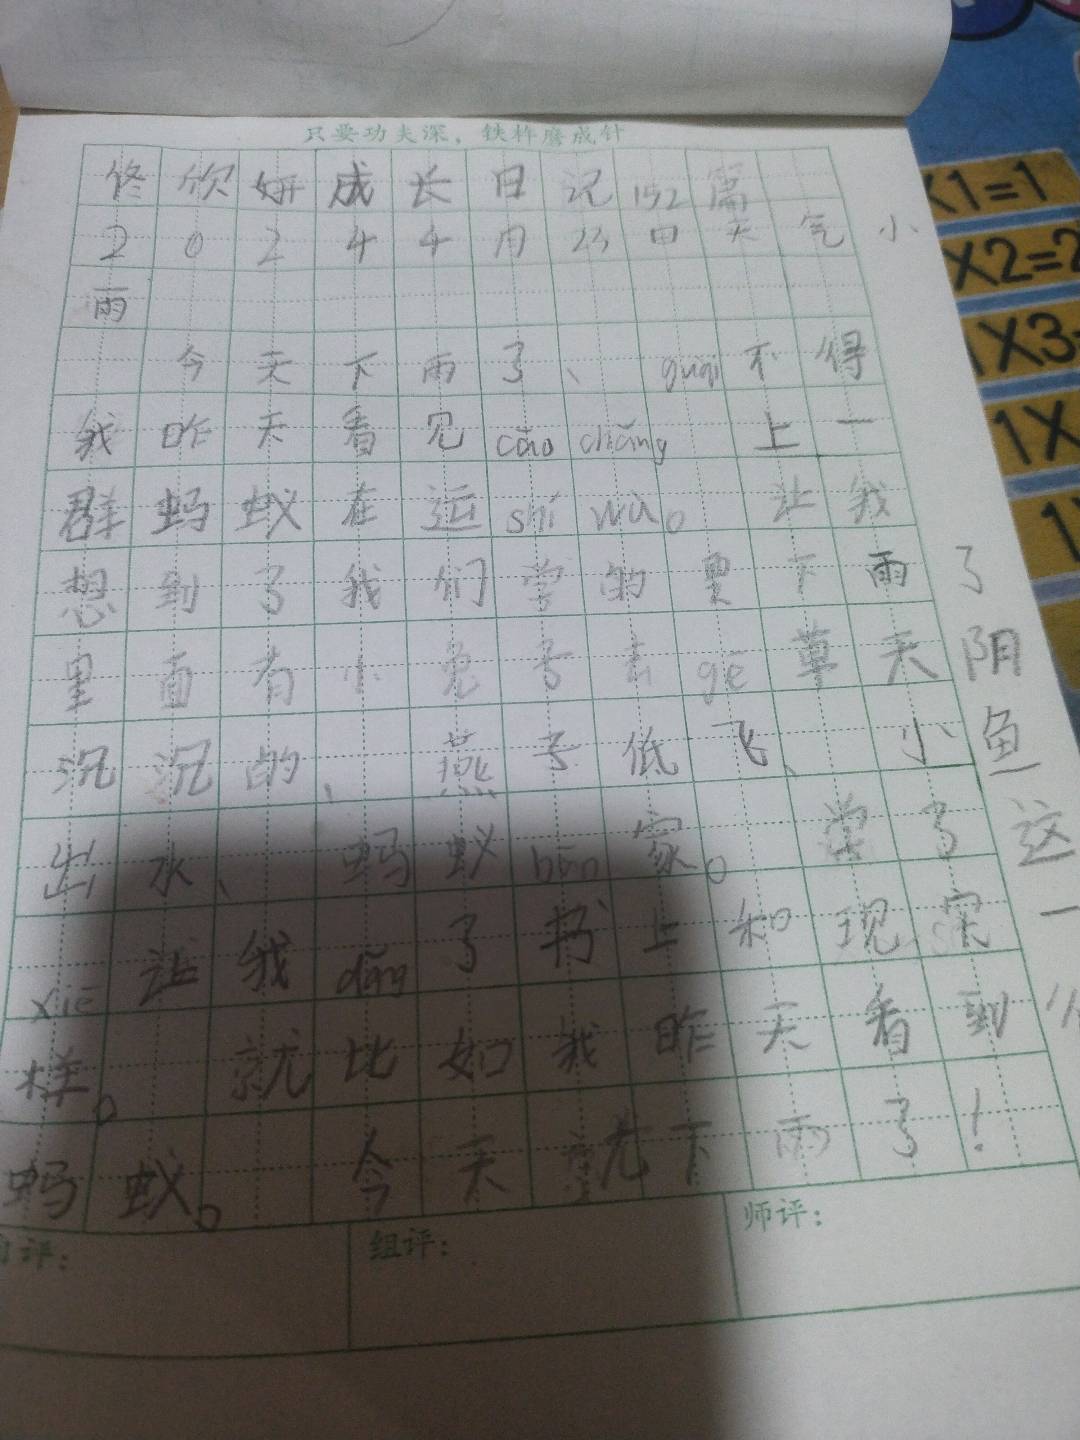 只要功夫深，铁杵磨成针
佟欣妍成长日记152篇
2024 4月23日天气小
雨
今天下雨了、guài不得
我昨天看见cāo chǎng上一
群蚂蚁在运shí wù。让我
想到了我们学的要下雨了
里面有小兔子去gē草天阴
沉沉的、燕子低飞、小鱼
出水、蚂蚁bān家。学了这
xiē让我dǒng了书上和现实一
样。就比如我昨天看到
蚂蚁。今天就下雨了！
自评：
组评：
师评：
X1=1
X2=2
1X3=
1X
1